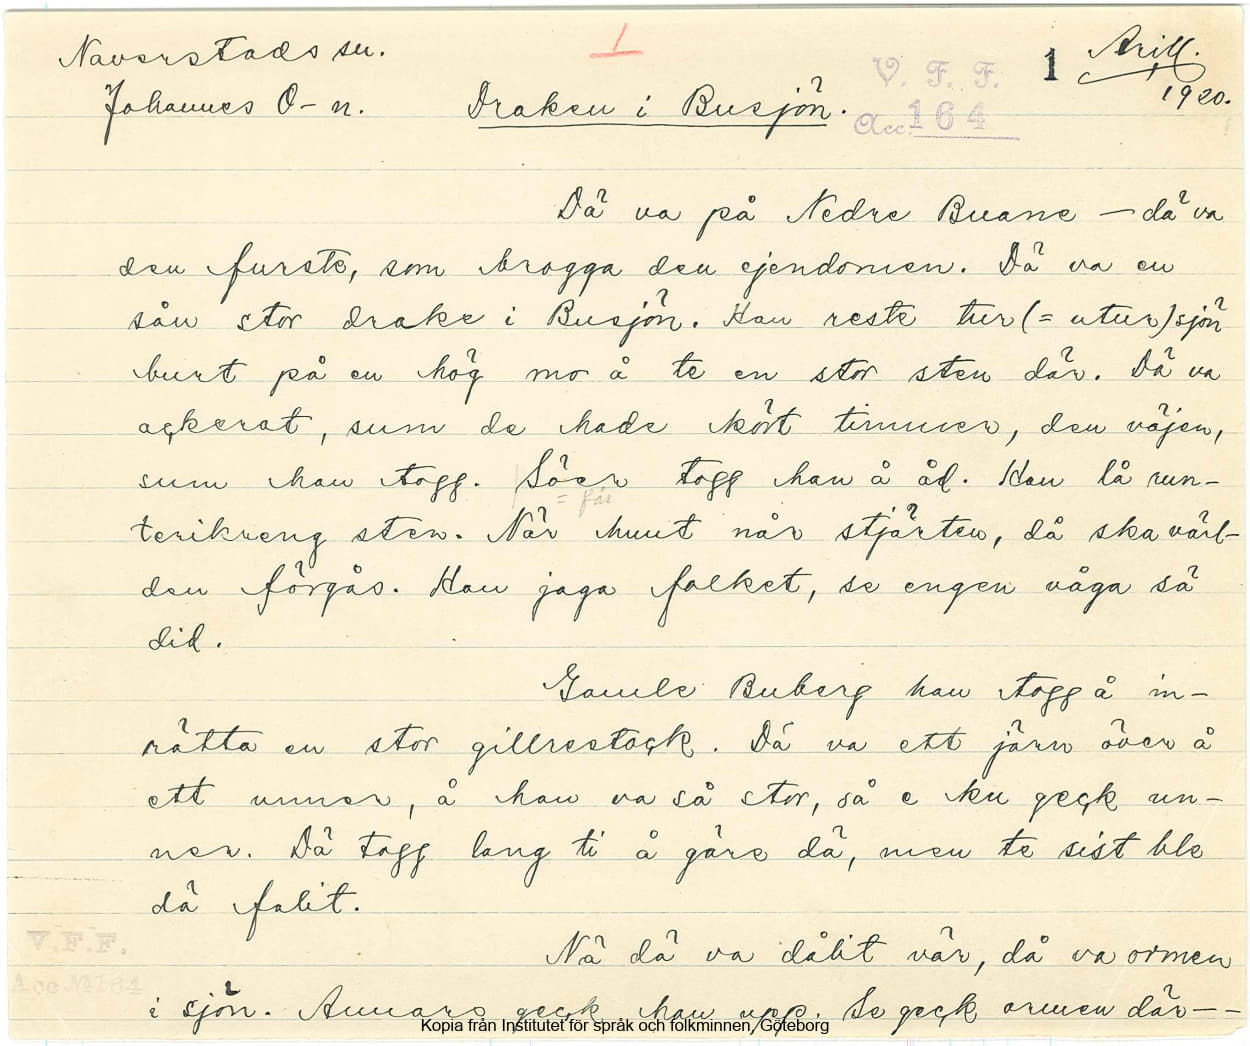 Naverstads sn.
1
V. F. F.
1
Arill.
1920.
Johannes O-n.
Draken i Busjön.
Acc. 164
Dä va på Nedre Buane — dä va
den furste, som brogga den ejendomen. Dä va en
sån stor drake i Busjön. Han reste tur (= utur) sjön
burt på en hög mo å te en stor sten där. Dä va
ackerat, sum de hade kört timmer, den väjen,
sum han togg. Söer togg han å åd. Han lå run-
= får
terikreng sten. När hunt når stjärten, då ska värl-
den förgås. Han jaga folket, se engen våga sä
did.
Gamle Buberg han togg å in-
rätta en stor gillrestock. Dä va ett järn över å
ett unner, å han va så stor, så e ku geck un-
ner. Dä togg lang ti å göre dä, men te sist ble
dä falit.
Nä dä va dålit vär, då va ormen
i sjön. Annars geck han upp. Se geck ormen där--
V.F.F.
Acc No 164
Kopia från Institutet för språk och folkminnen, Göteborg